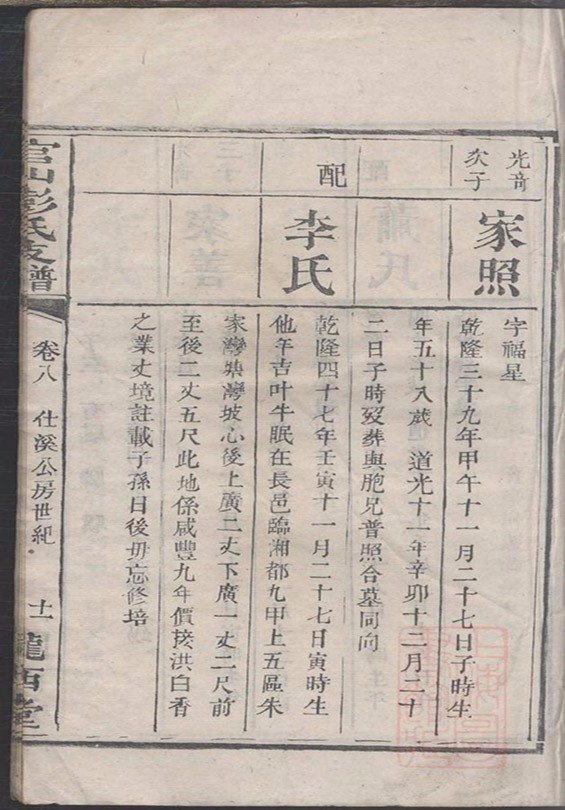 光奇
次子
家照
字福星
乾隆三十九年甲午十一月二十七日子時生
年五十八歲道光十一年辛卯十二月二十
二日子時歿葬與胞兄普照合墓同向
配
李氏
乾隆四十七年壬寅十一月二十七日寅時生
他年吉叶牛眠在長邑臨湘都九甲上五區朱
家灣塅灣坡心後上廣二丈下廣一丈二尺前
至後二丈五尺此地係咸豐九年價接洪白香
之業丈境註載子孫日後毋忘修培
官山彭氏支譜
卷八 仕溪公房世紀 十一
隴西堂